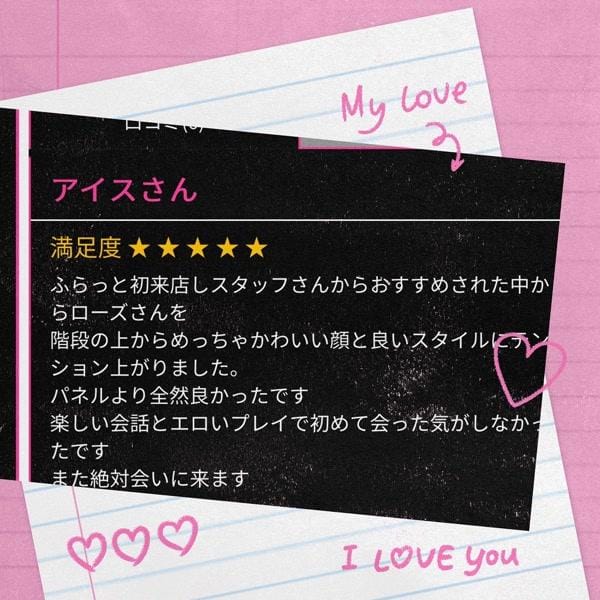 My Love
口コミ(6)
アイスさん
満足度 ★★★★★
ふらっと初来店しスタッフさんからおすすめされた中か
らローズさんを
階段の上からめっちゃかわいい顔と良いスタイルにテン
ション上がりました。
パネルより全然良かったです
楽しい会話とエロいプレイで初めて会った気がしなかっ
たです
また絶対会いに来ます
I LOVE you